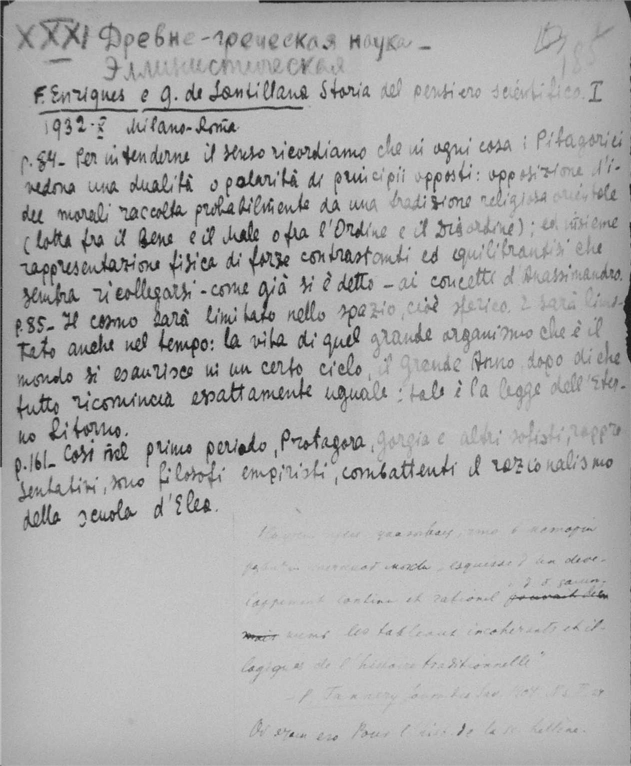 XXXI Древне-греческая наука -
Эллинистическая
185
F. Enriques e G. de Santillana Storia del pensiero scientifico. I
1932-X Milano-Roma
p. 84- Per intenderne il senso ricordiamo che in ogni cosa i Pitagorici
vedona una dualità o polarità di principii opposti: opposizione d'i-
dee morali raccolta probabilmente da una tradizione religiosa orientale
(lotta fra il Bene e il Male o fra l'Ordine e il Disordine); ed insieme
rappresentazione fisica di forze contrastanti ed equilibrantisi che
sembra ricollegarsi - come già si è detto - ai concetti d'Anassimandro.
p. 85- Il cosmo sarà limitato nello spazio, cioè sferico. E sarà limi-
tato anche nel tempo: la vita di quel grande organismo che è il
mondo si esaurisce in un certo ciclo, il Grande Anno, dopo di che
tutto ricomincia esattamente uguale: tale è la legge dell'Eter-
no Ritorno.
p. 161- Così nel primo periodo, Protagora, Gorgia e altri sofisti, rappre
sentativi, sono filosofi empiristi, combattenti il razionalismo
della scuola d'Elea.
esquisse d'un deve-
loppement continu et rationel
mais les tableaux incohérents et il-
logiques de l'histoire traditionnelle"
P. Tannery
Pour l'hist. de la sc. hellène.